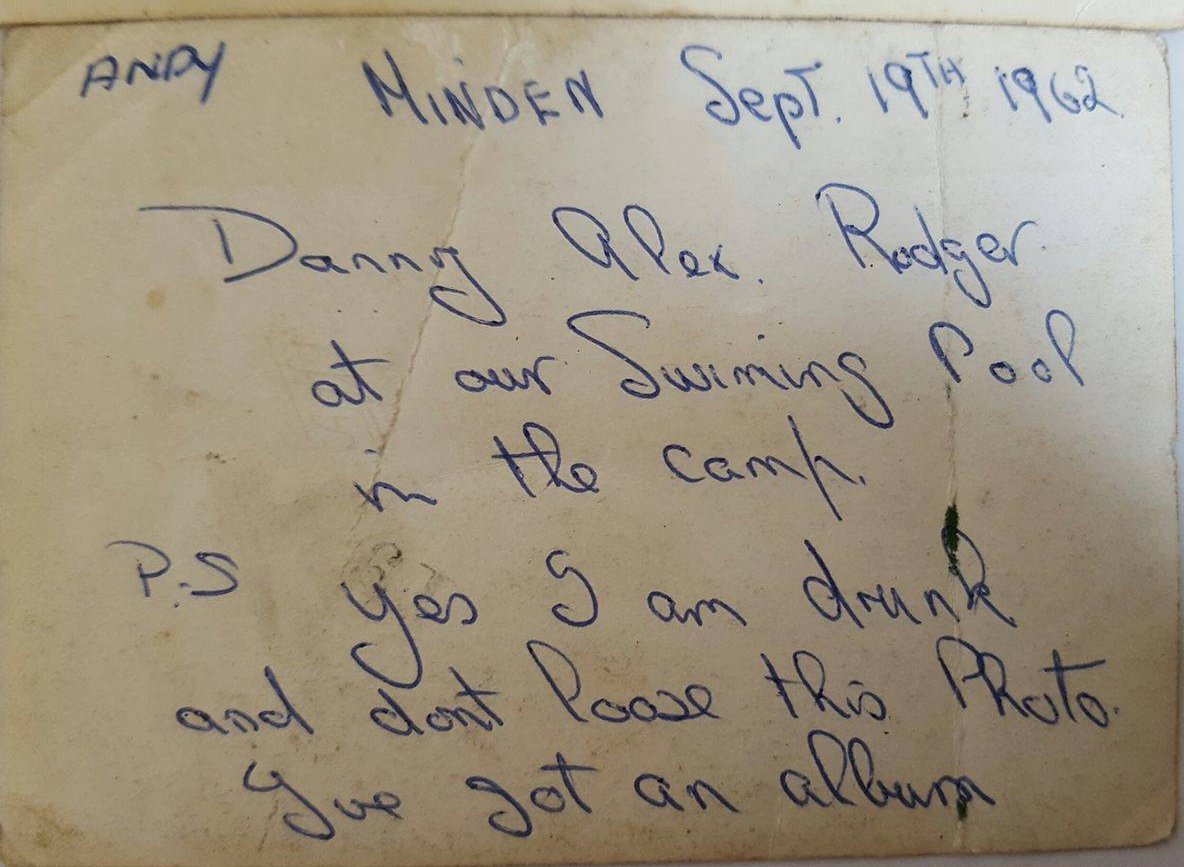 ANDY MINDEN Sept. 19TH 1962
Danny Alex. Rodger.
at our Swiming Pool
in the camp.
P.S Yes I am drunk
and dont loose this Photo.
Ive got an album